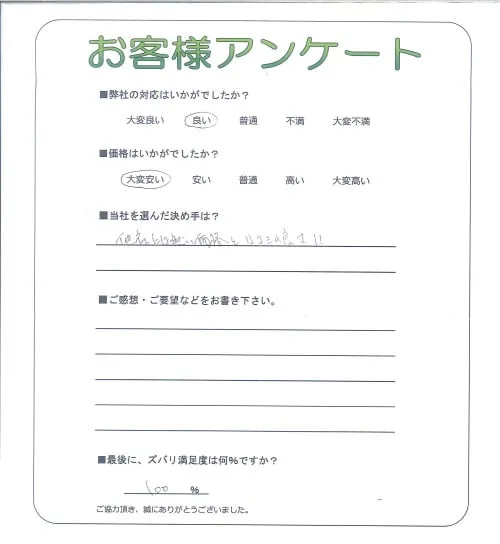 お客様アンケート
■弊社の対応はいかがでしたか？
大変良い 良い 普通 不満 大変不満
■価格はいかがでしたか？
大変安い 安い 普通 高い 大変高い
■当社を選んだ決め手は？
他社には無い価格と
■ご感想・ご要望などをお書き下さい。
■最後に、ズバリ満足度は何%ですか？
100 %
ご協力頂き、誠にありがとうございました。